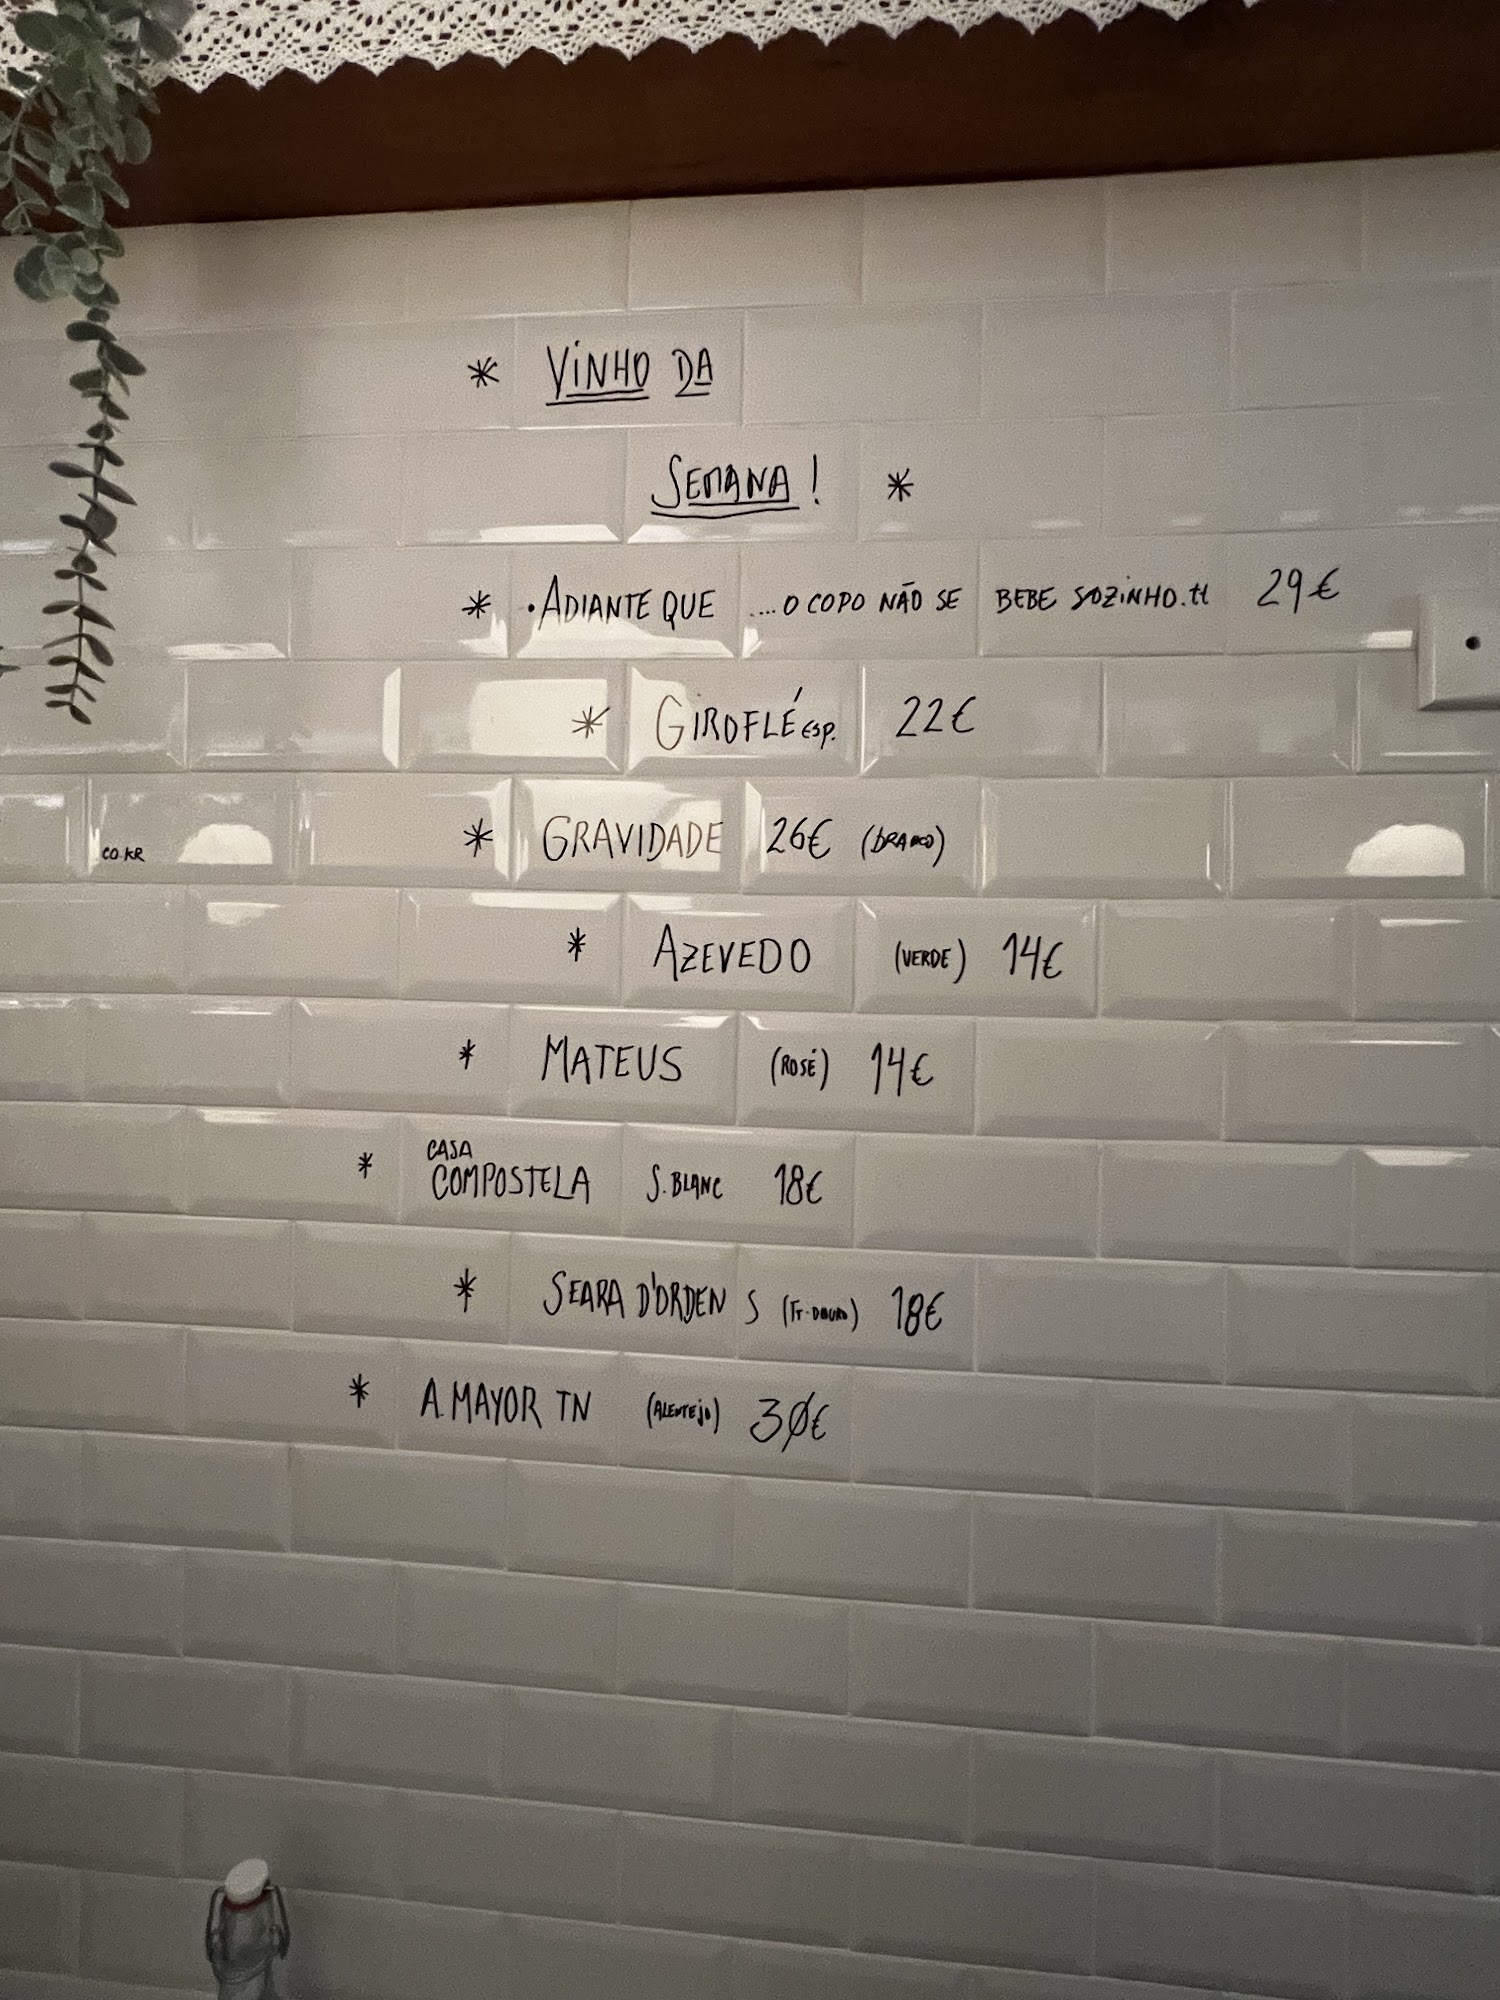 * VINHO DA
SEMANA! *
* · ADIANTE QUE ....O COPO NÃO SE BEBE SOZINHO.tt 29€
* GIROFLÉ ESP. 22€
CO.KR
* GRAVIDADE 26€ (BRANCO)
* AZEVEDO (VERDE) 14€
* MATEUS (ROSÉ) 14€
* CASA COMPOSTELA S.BLANC 18€
* SEARA D'ORDENS (TT-DOURO) 18€
* A.MAYOR TN (ALENTEJO) 30€